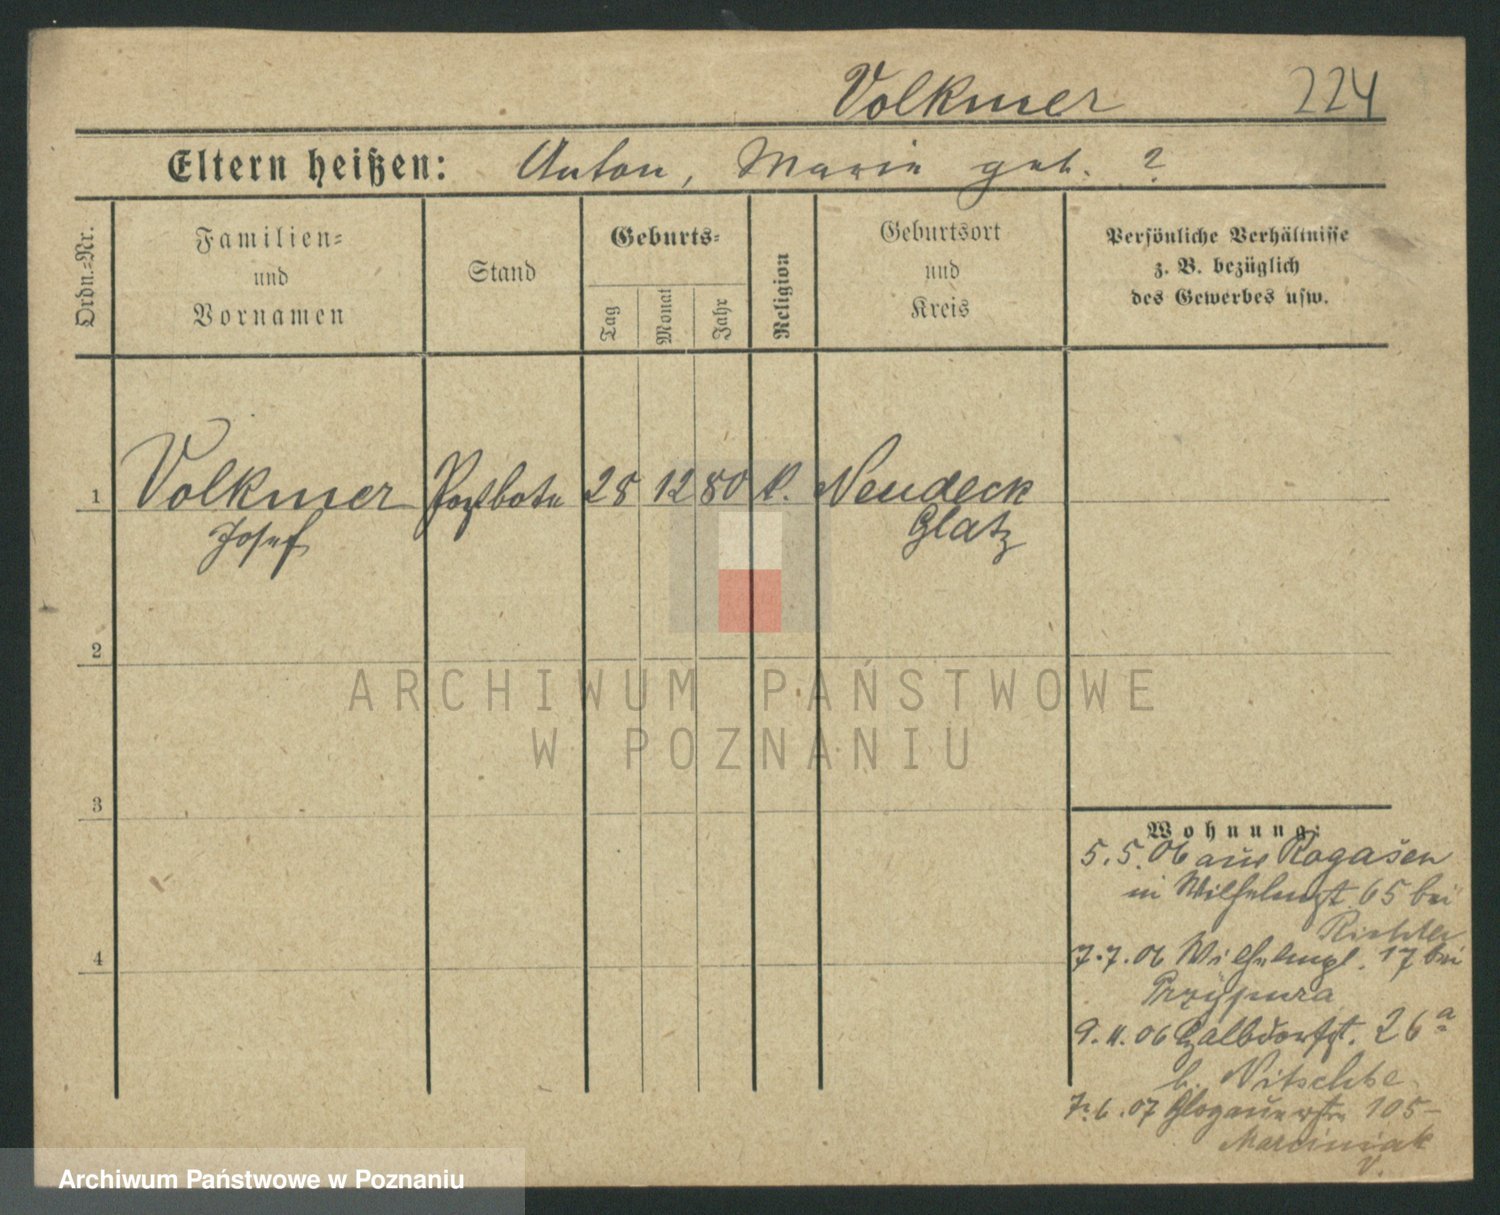 Volkmer 224
Eltern heißen: Anton, Marie geb. ?
Ordn.=Nr.
Familien=
und
Vornamen
Stand
Geburts=
Tag
Monat
Jahr
Religion
Geburtsort
und
Kreis
Persönliche Verhältnisse
z. B. bezüglich
des Gewerbes usw.
1 Volkmer Postbote 28 12 80 k. Neudeck
Josef Glatz
2
3
4
ARCHIWUM PAŃSTWOWE
W POZNANIU
Wohnung:
5.5.06 aus Rogasen
in Wilhelmst. 65 bei
Richter
7.7.06 Wilhelmpl. 17 bei
Przypura
9.11.06 Halbdorfst. 26a
b. Nitschke
7.6.07 Glogauerstr 105-
Marciniak
V.
Archiwum Państwowe w Poznaniu